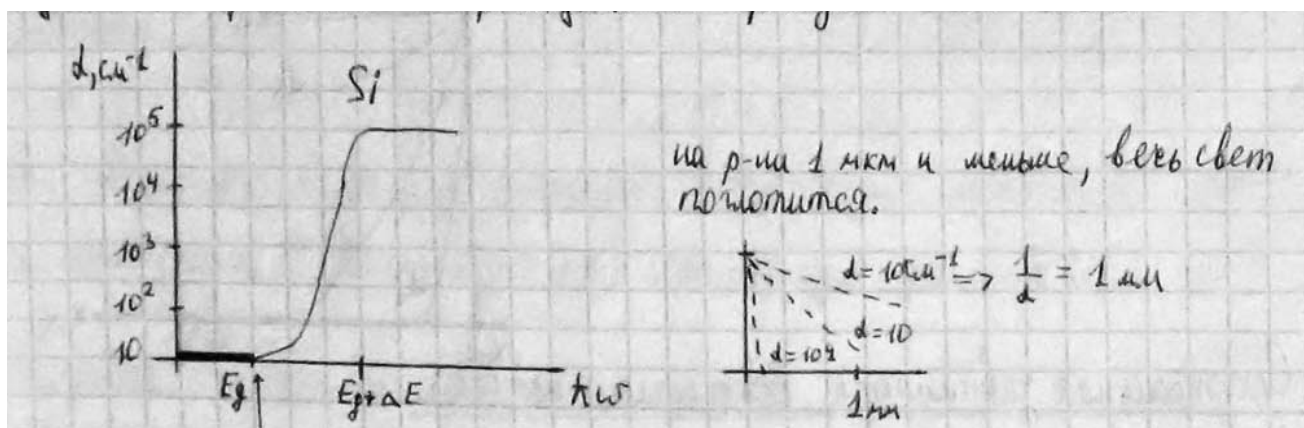 α, см⁻¹
Si
10⁵
10⁴
10³
10²
10
Eg
Eg+ΔE
ħω
на р-на 1 мкм и меньше, весь свет
поглотится.
α = 10см⁻¹ => 1/α = 1 мм
α=10
α=10⁴
1мм